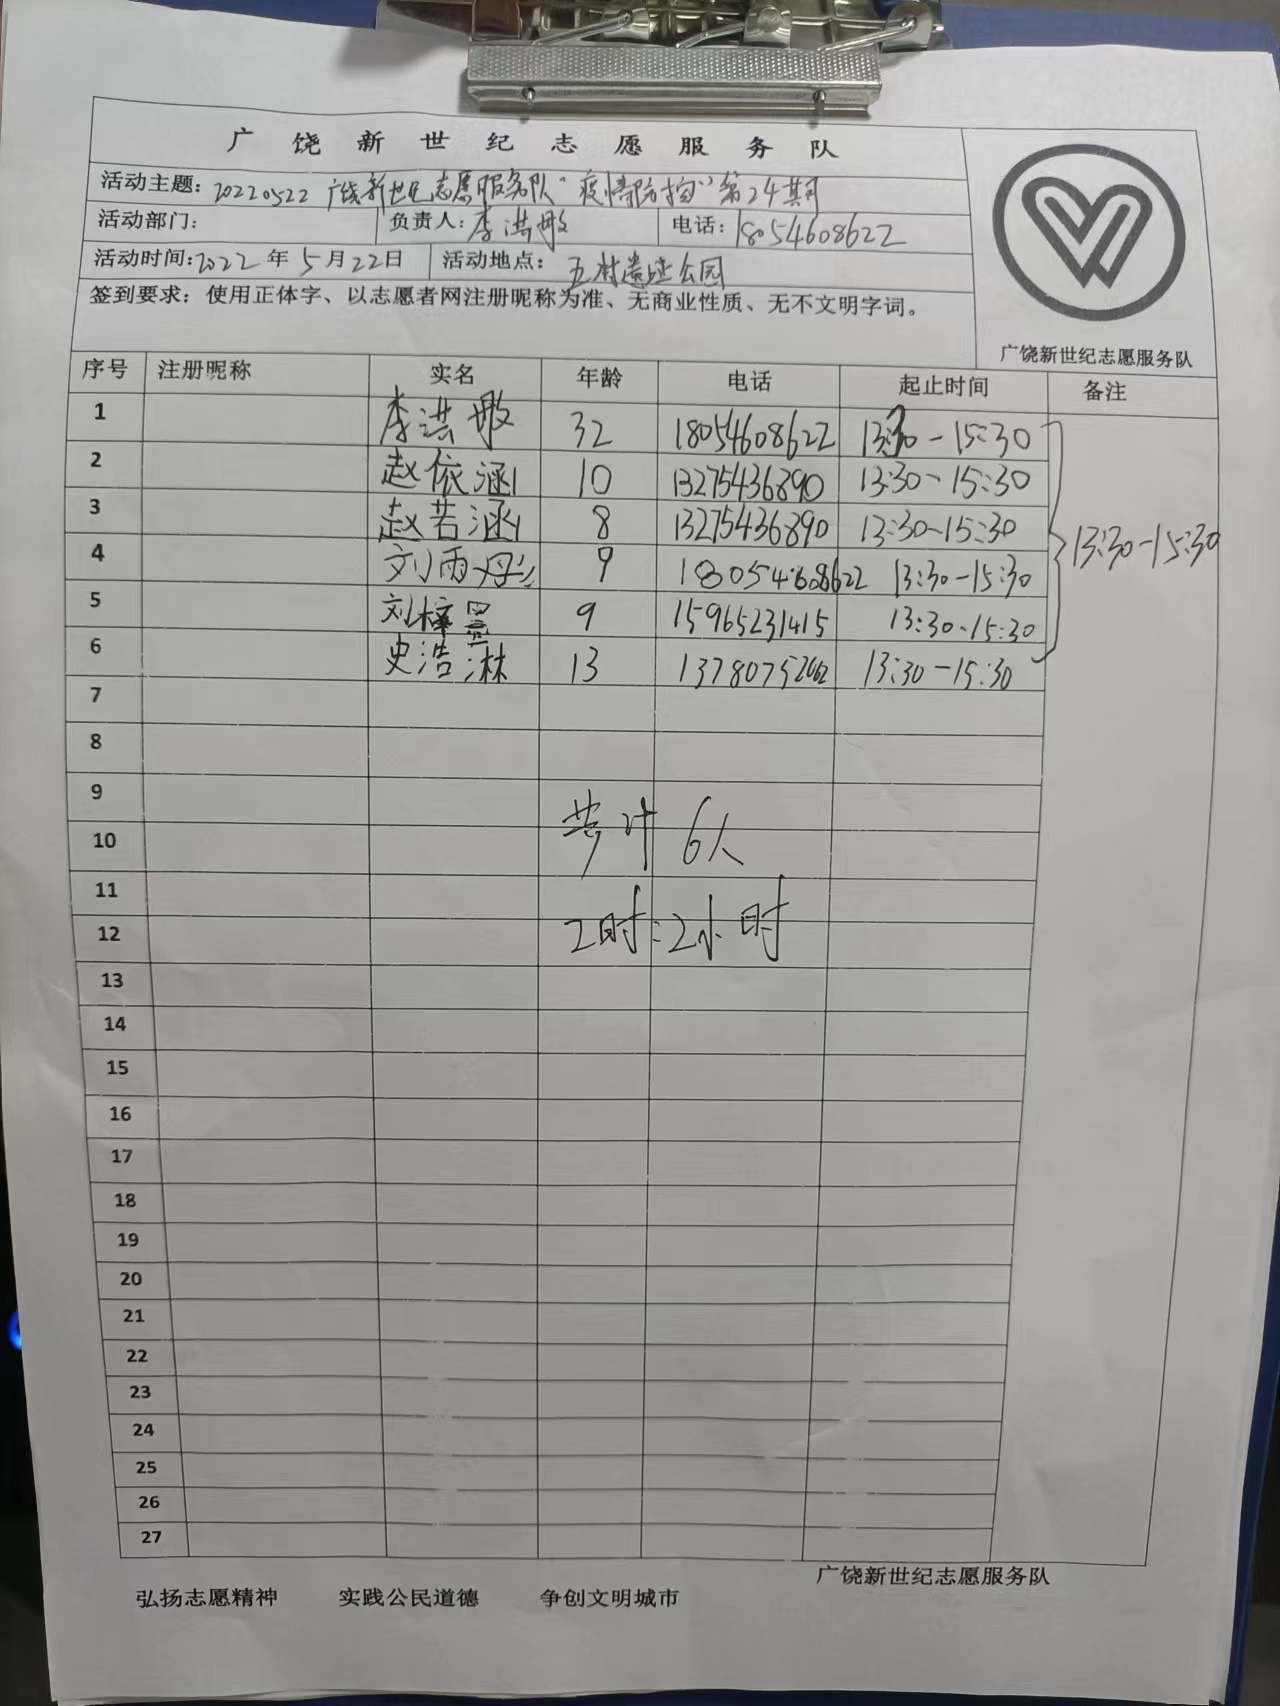 广饶新世纪志愿服务队
活动主题：20220522 广饶新世纪志愿服务队"疫情防控"第24期
活动部门： 负责人：李洪敏 电话：18054608622
活动时间：2022年5月22日 活动地点：五村遗址公园
签到要求：使用正体字、以志愿者网注册昵称为准、无商业性质、无不文明字词。
广饶新世纪志愿服务队
序号 注册昵称 实名 年龄 电话 起止时间 备注
1 李洪敏 32 18054608622 13:30-15:30
2 赵依涵 10 13275436890 13:30-15:30
3 赵若涵 8 13275436890 13:30-15:30
13:30-15:30
4 刘雨彤 9 18054608622 13:30-15:30
5 刘梓墨 9 15965231415 13:30-15:30
6 史浩淋 13 13780752062 13:30-15:30
7
8
9
共计 6人
10
11
2时:2小时
12
13
14
15
16
17
18
19
20
21
22
23
24
25
26
27
广饶新世纪志愿服务队
弘扬志愿精神 实践公民道德 争创文明城市